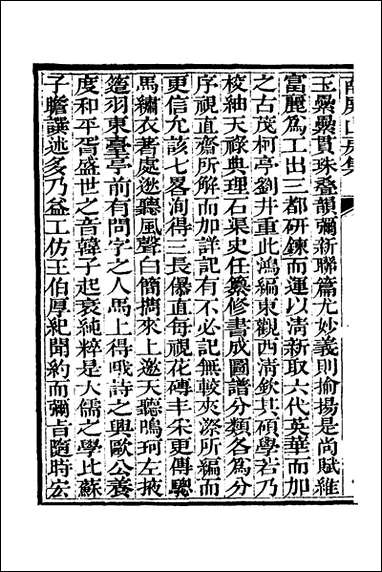 南屏山房集
玉纍纍貫珠叠韻彌新聯篇尤妙義則揄揚是尚賦維
富麗爲工出三都研鍊而運以清新取六代英華而加
之古茂柯亭劉井重此鴻編東觀西清欽其碩學若乃
校紬天祿典理石渠史任纂修書成圖譜分類各爲分
序視直齋所解而加詳記有不必記無較夾漈所編而
更信允該七畧洵得三長儤直每視花磚丰采更傳驄
馬繡衣著處逖聽風聲白簡擕來上邀天聽鳴珂左掖
簉羽東臺亭前有問字之人馬上得哦詩之興歐公養
度和平胥盛世之音韓子起衰純粹是大儒之學比蘇
子瞻譔述多乃益工仿王伯厚紀聞約而彌旨隨時宏